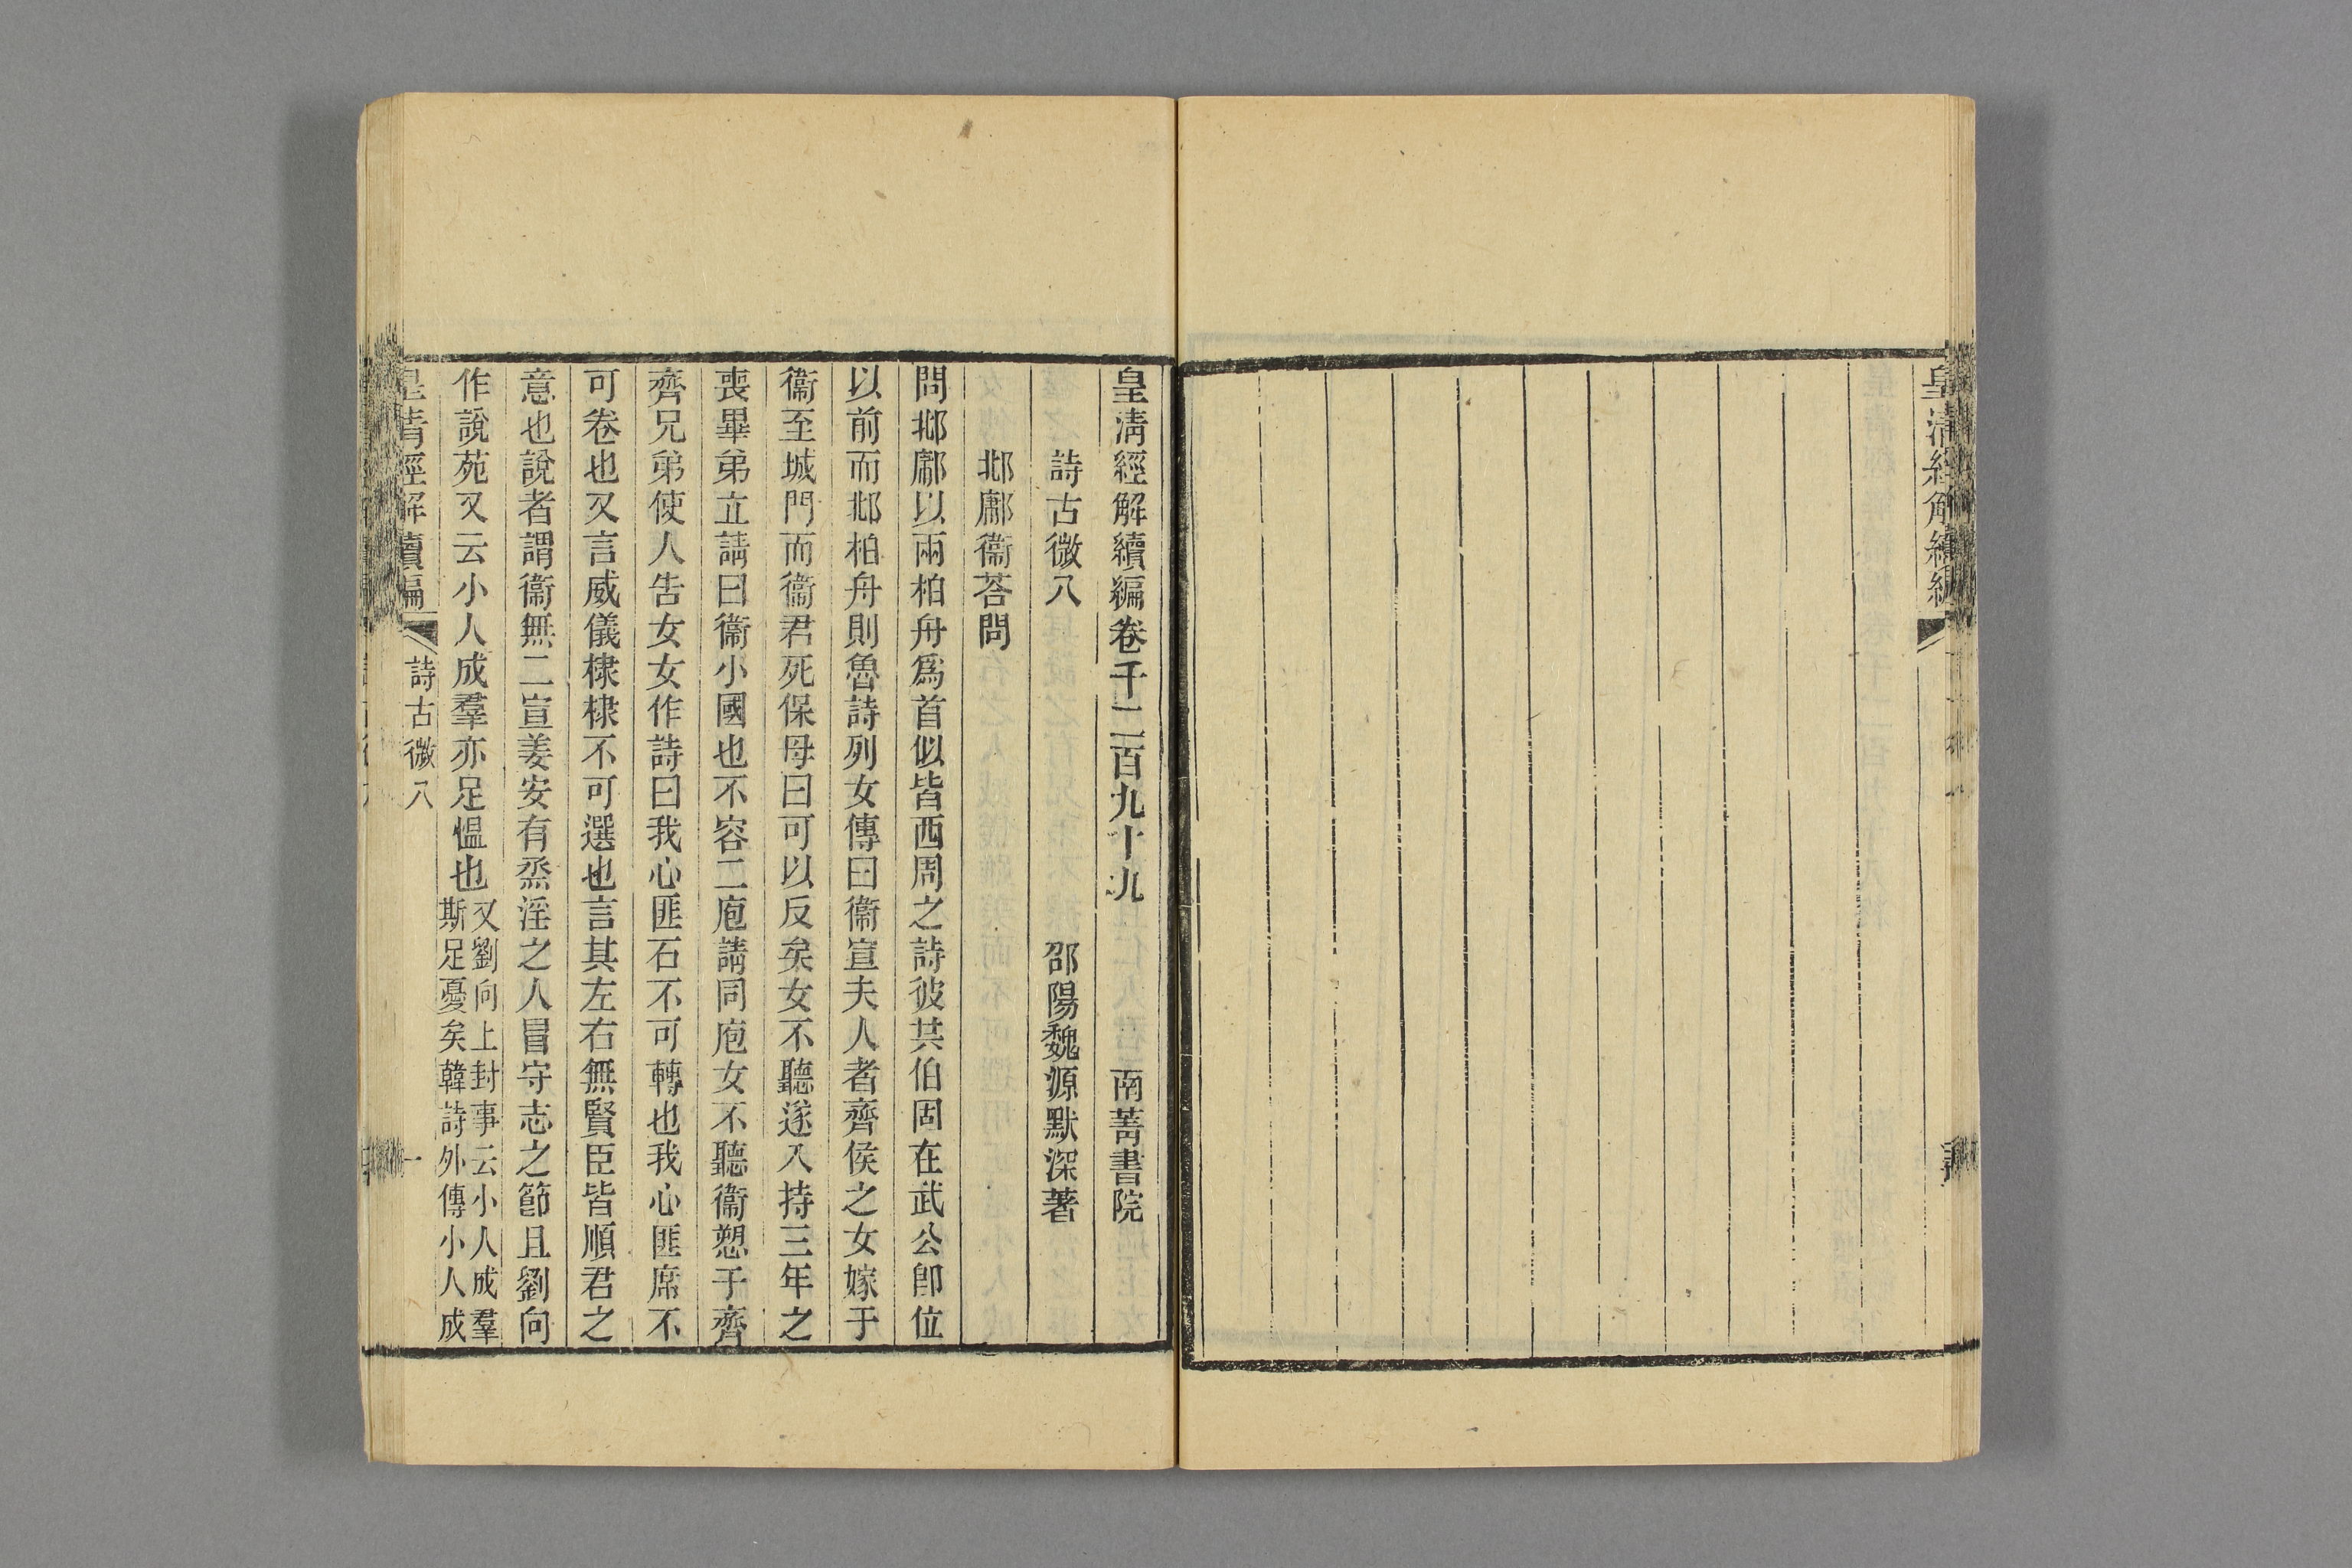 皇清經解續編
皇清經解續編卷千二百九十九　南菁書院
詩古微八　邵陽魏源默深著
邶鄘衞荅問
問邶鄘以兩柏舟爲首似皆西周之詩彼共伯固在武公卽位
以前而邶柏舟則魯詩列女傳曰衞宣夫人者齊侯之女嫁于
衞至城門而衞君死保母曰可以反矣女不聽遂入持三年之
喪畢弟立請曰衞小國也不容二庖請同庖女不聽衞愬于齊
齊兄弟使人告女女作詩曰我心匪石不可轉也我心匪席不
可卷也又言威儀棣棣不可選也言其左右無賢臣皆順君之
意也說者謂衞無二宣姜安有烝淫之人冒守志之節且劉向
作說苑又云小人成羣亦足慍也又劉向上封事云小人成羣
斯足憂矣韓詩外傳小人成
皇清經解續編　詩古微八　一